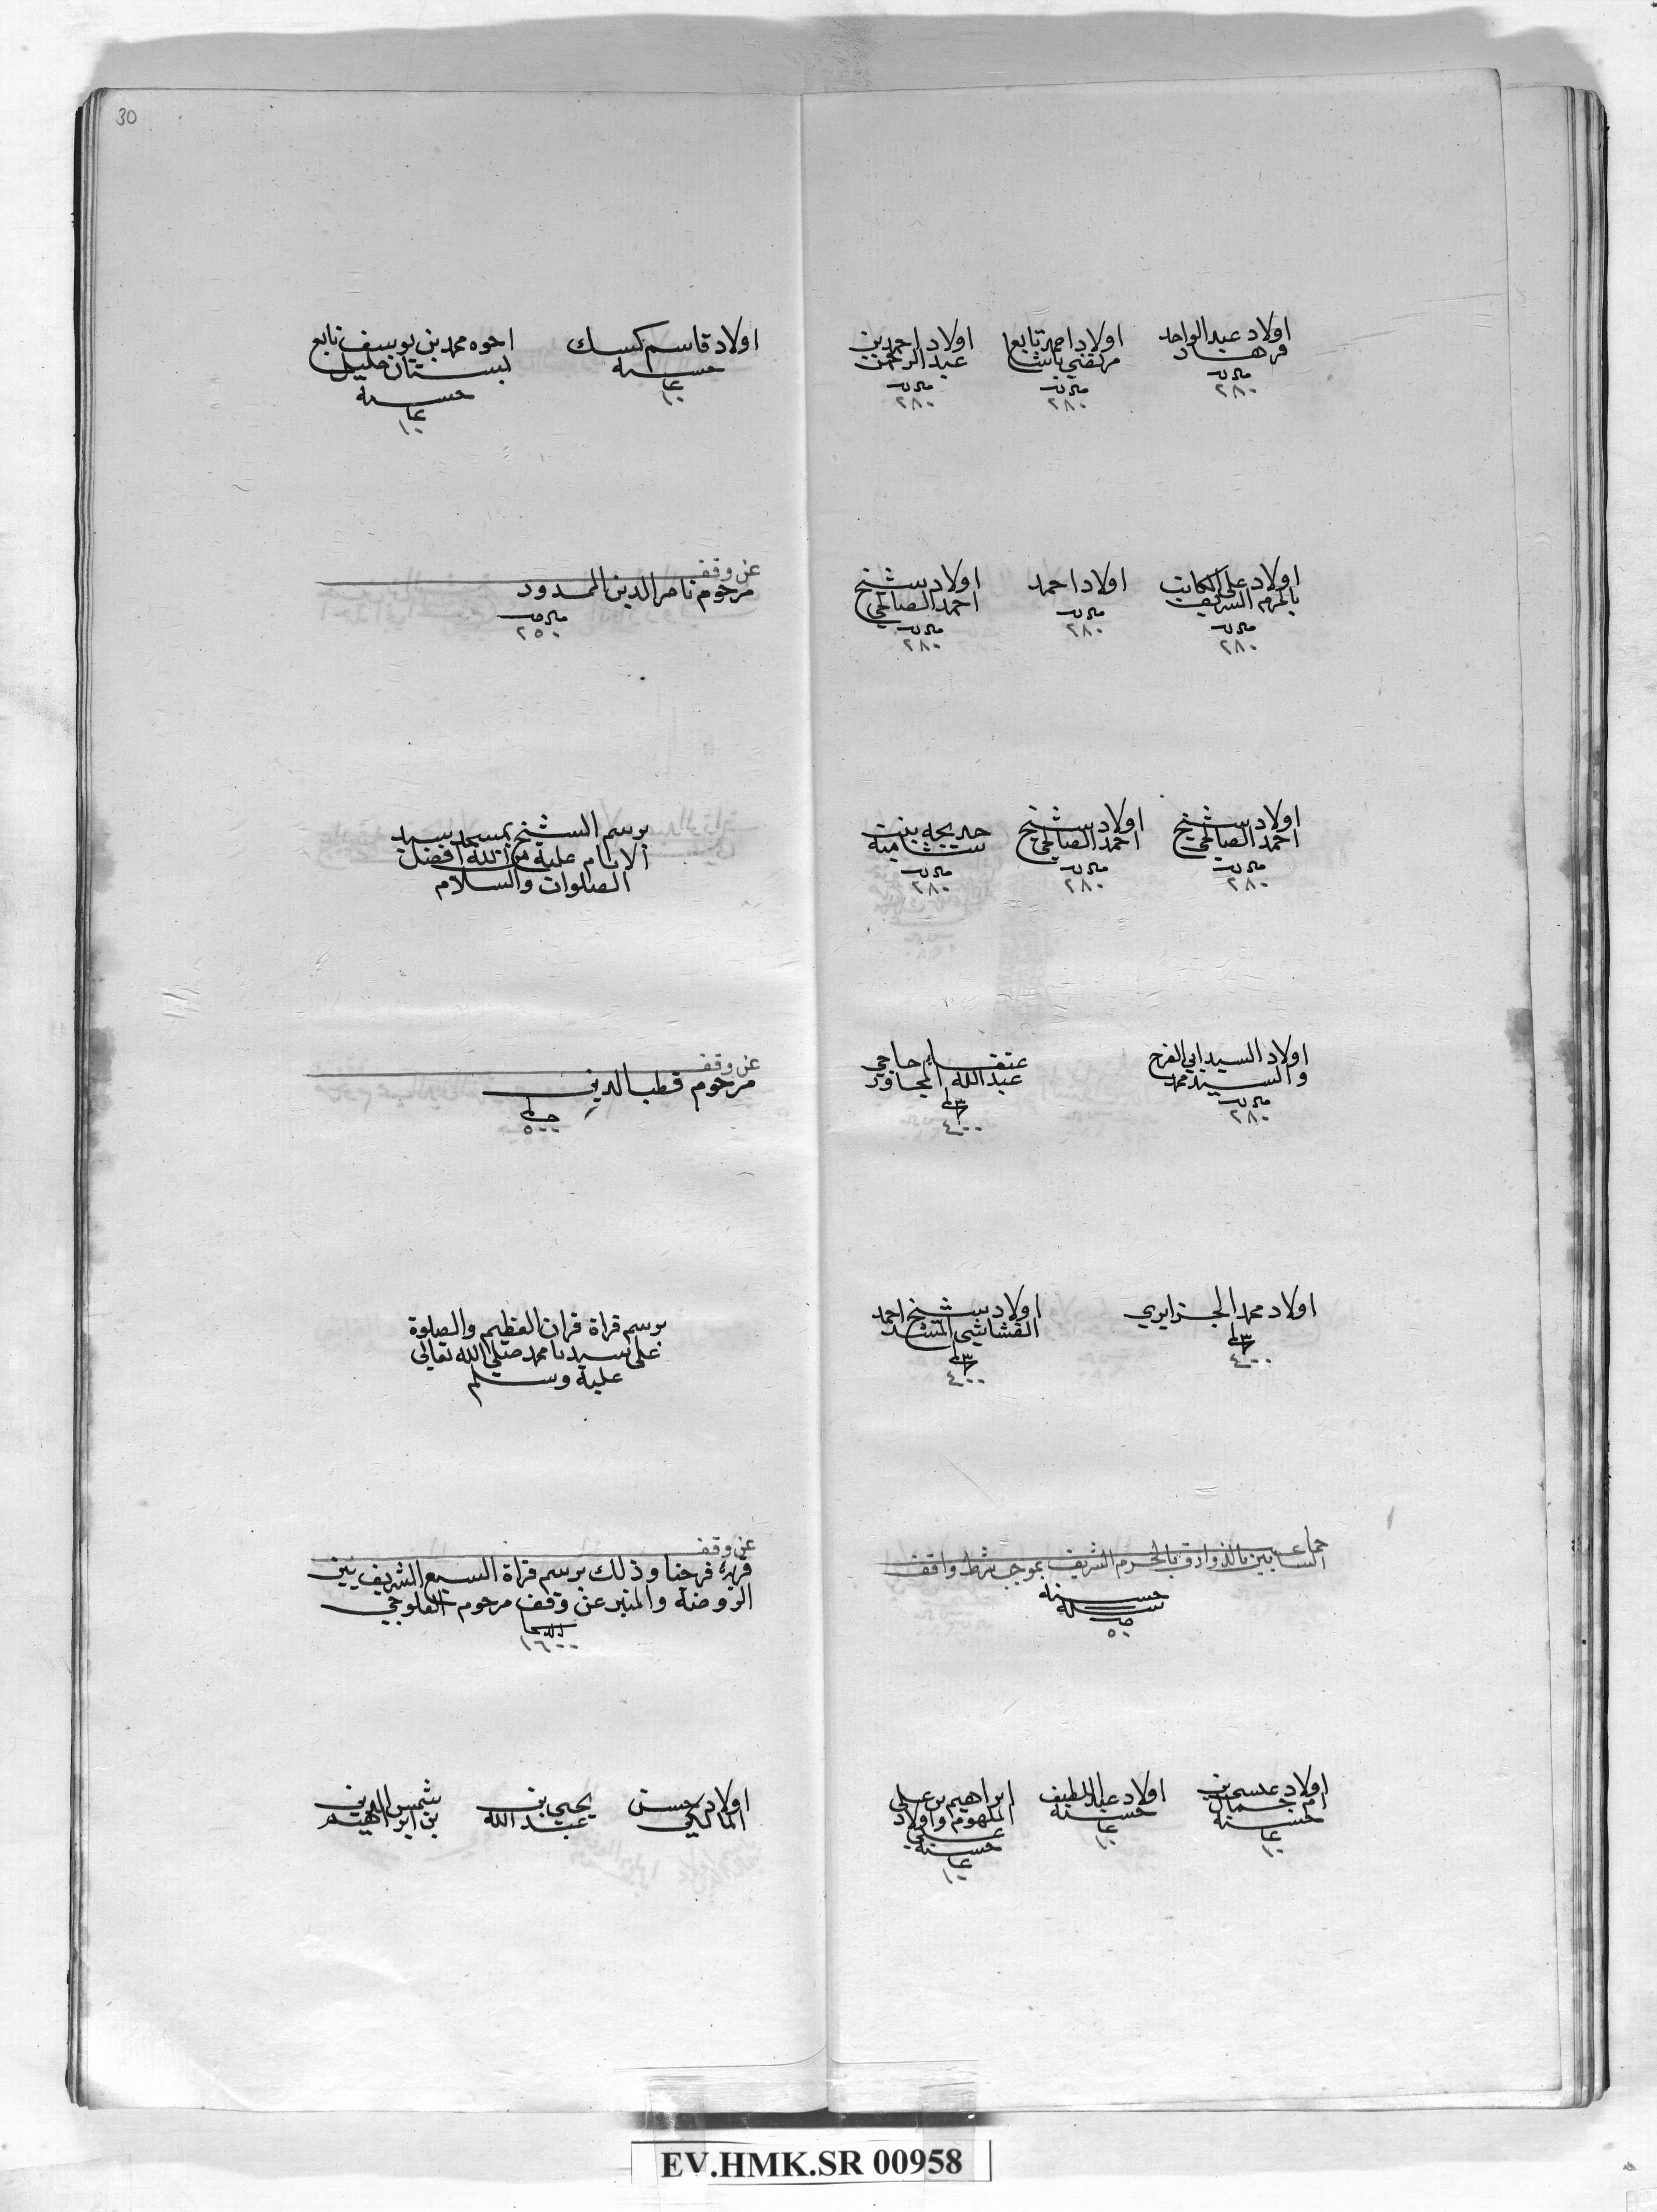 30
اولاد عبد الواحد
فرهاد
٢٨٠
اولاد احمد تابع
مرتضي باشا
٢٨٠
اولاد احمد بن
عبد الرحمن
٢٨٠
اولاد على الكاتب
بالحرم الشريف
٢٨٠
اولاد احمد
٢٨٠
اولاد شيخ
احمد الصالحي
٢٨٠
اولاد شيخ
احمد الصالحي
٢٨٠
اولاد شيخ
احمد الصالحي
٢٨٠
خديجه بنت
شامية
٢٨٠
اولاد السيد ابي الفرج
والسيد محمد
٢٨٠
عتقاء حاجي
عبد الله المجاور
٤٠٠
اولاد محمد الجزايري
٤٠٠
اولاد شيخ احمد
القشاشي
٤٠٠
جماعة
بالحرم الشريف بموجب شرط واقف
حسنه
٥٠
اولاد عيسى بن
ام جمال
حسنة
١٠
اولاد عبد اللطيف
حسنة
١٠
ابراهيم بن علي
الملهوم واولاد
علي
حسنة
١٠
اولاد قاسم كسك
حسنة
١٠
اخوه محمد بن يوسف تابع
بستان خليل
حسنة
١٠
عن وقف
مرحوم ناصر الدين الممدود
٢٥٠
برسم الشيخ بمسجد سيد
الانام عليه من الله افضل
الصلوات والسلام
عن وقف
مرحوم قطب الدين
٥٠٠
برسم قراة قران العظيم والصلوة
على سيدنا محمد صلى الله تعالى
عليه وسلم
عن وقف
قريه فرحنا وذلك برسم قراة السبع الشريف بين
الروضة والمنبر عن وقف مرحوم
١٦٠٠
اولاد حسن
المالكي
يحيي بن
عبد الله
شمس الدين
بن ابراهيم
EV.HMK.SR 00958